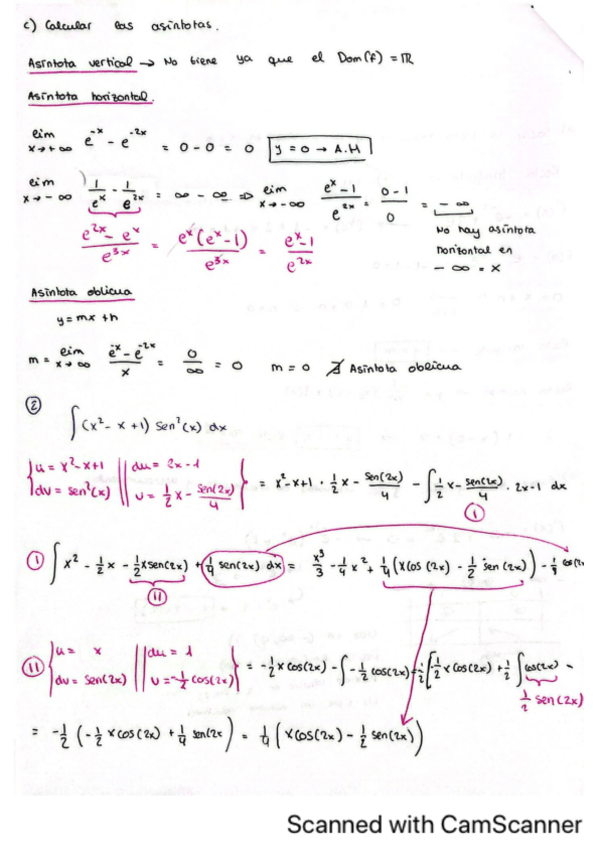 c) Calcular las asíntotas.
Asíntota vertical → No tiene ya que el Dom(f) = ℝ
Asíntota horizontal.
lim x→+∞ e^-x - e^-2x = 0 - 0 = 0 y = 0 → A.H
lim x→-∞ 1/e^x - 1/e^2x = ∞ - ∞ ⇒ lim x→-∞ (e^x - 1)/e^2x = (0-1)/0 = -∞
(e^2x - e^x)/e^3x = e^x(e^x - 1)/e^3x = (e^x - 1)/e^2x
No hay asíntota
horizontal en
- ∞ = x
Asíntota oblicua
y = mx + n
m = lim x→∞ (e^-x - e^-2x)/x = 0/∞ = 0 m = 0 ∄ Asíntota oblicua
②
∫(x² - x + 1) sen²(x) dx
{u = x² - x + 1 || du = 2x - 1
dv = sen²(x) || v = 1/2 x - sen(2x)/4} = x² - x + 1 · 1/2 x - sen(2x)/4 - ∫ 1/2 x - sen(2x)/4 · 2x - 1 dx
Ⓘ
Ⓘ ∫ x² - 1/2 x - 1/2 x sen(2x) + 1/4 sen(2x) dx = x³/3 - 1/4 x² + 1/4 (x cos(2x) - 1/2 sen(2x)) - 1/8 cos(2x
II
II {u = x || du = 1
dv = sen(2x) || v = -1/2 cos(2x)} = -1/2 x cos(2x) - ∫ -1/2 cos(2x) = -1/2 [-1/2 x cos(2x) + 1/2 ∫ cos(2x) =
1/2 sen(2x)
= -1/2 (-1/2 x cos(2x) + 1/4 sen(2x) = 1/4 (x cos(2x) - 1/2 sen(2x))
Scanned with CamScanner